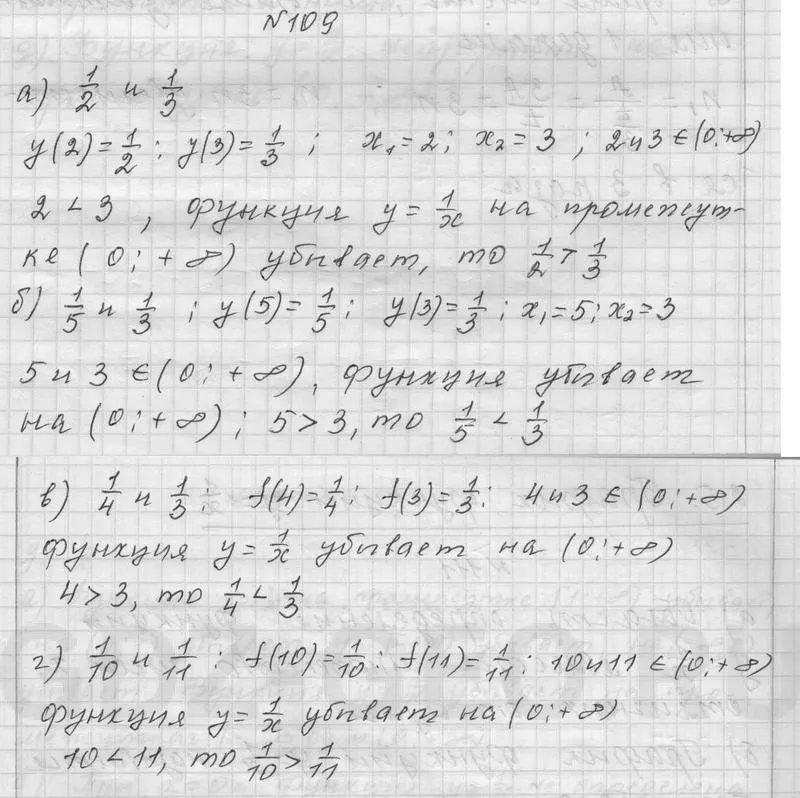 №109
а) 1/2 и 1/3
y(2)=1/2; y(3)=1/3; x₁=2; x₂=3; 2 и 3 ∈ (0;+∞)
2 < 3, функция y=1/x на промежут-
ке (0;+∞) убывает, то 1/2 > 1/3
б) 1/5 и 1/3; y(5)=1/5; y(3)=1/3; x₁=5; x₂=3
5 и 3 ∈ (0;+∞), функция убывает
на (0;+∞); 5 > 3, то 1/5 < 1/3
в) 1/4 и 1/3; f(4)=1/4; f(3)=1/3; 4 и 3 ∈ (0;+∞)
функция y=1/x убывает на (0;+∞)
4 > 3, то 1/4 < 1/3
г) 1/10 и 1/11; f(10)=1/10; f(11)=1/11; 10 и 11 ∈ (0;+∞)
функция y=1/x убывает на (0;+∞)
10 < 11, то 1/10 > 1/11